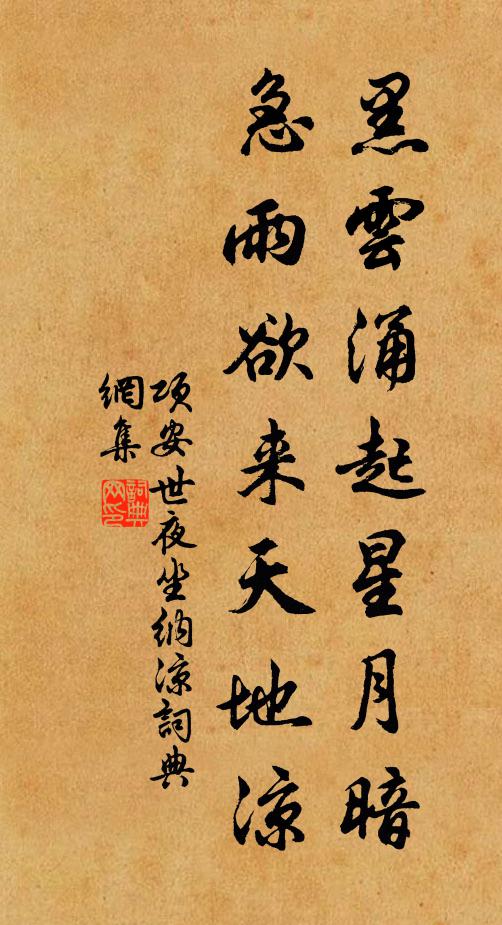 黑雲涌起星月暗
急雨欲来天地涼
项安世夜坐纳涼詞典
網集
詞典
网印